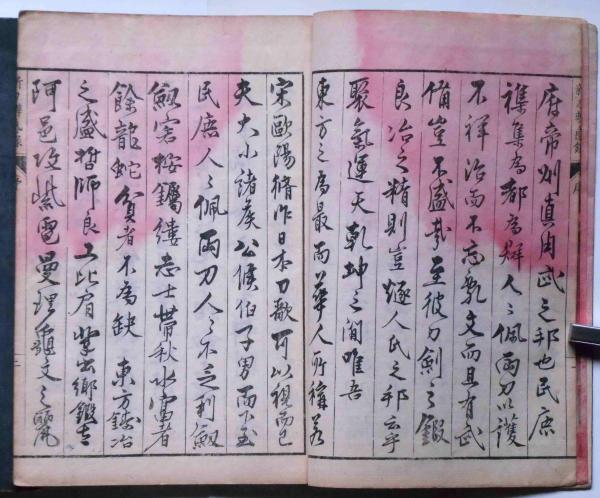 府帝州真尚武之邦也民庶
襍集為都為群人〻佩両刀以護
不祥治而不忘乱文而且有武
備豈不盛哉至彼刀劍之鍛
良冶之精則豈趐人民之邦云乎
聚氣運天乾坤之間唯吾
東方之為最而華人所稱若
宋歐陽脩作日本刀歌可以視而已
夫大小諸矦公候伯子男而下至
民庶人〻佩両刀人〻不乏利劔
劔室按鐲縷志士帶秋水富者
餘龍蛇貧者不為缺東方鋳冶
之盛哲師良工比肩掌云鄉鑑吉
阿邑攻紫電曼理龜文之麗
序